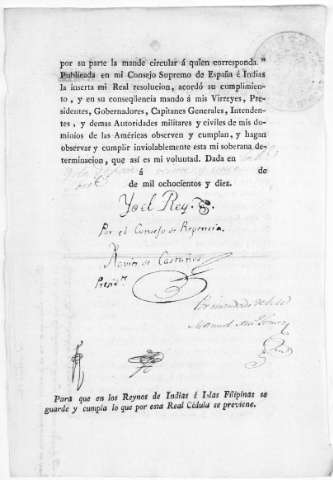 por su parte la mande circular á quien corresponda."
Publicada en mi Consejo Supremo de España é Indias
la inserta mi Real resolucion, acordó su cumplimien-
to, y en su conseqüencia mando á mis Vireyes, Pre-
sidentes, Gobernadores, Capitanes Generales, Intenden-
tes, y demas Autoridades militares y civiles de mis do-
minios de las Américas observen y cumplan, y hagan
observar y cumplir inviolablemente esta mi soberana de-
terminacion, que así es mi voluntad. Dada en
á de
de mil ochocientos y diez.
Yo el Rey.
Por el Consejo de Regencia.
Xavier de Castaños
Presid.te
Por mandado
Manuel
Para que en los Reynos de Indias é Islas Filipinas se
guarde y cumpla lo que por esta Real Cédula se previene.